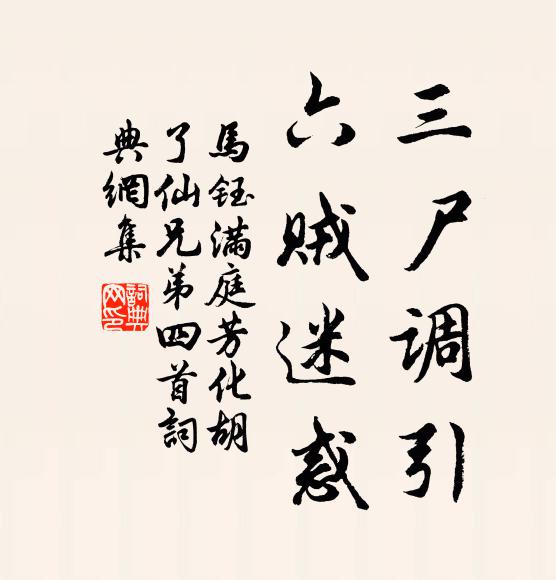 三尸调引
六贼迷惑
馬鈺满庭芳化胡
了仙兄弟四首詞
典網集
詞典
网印